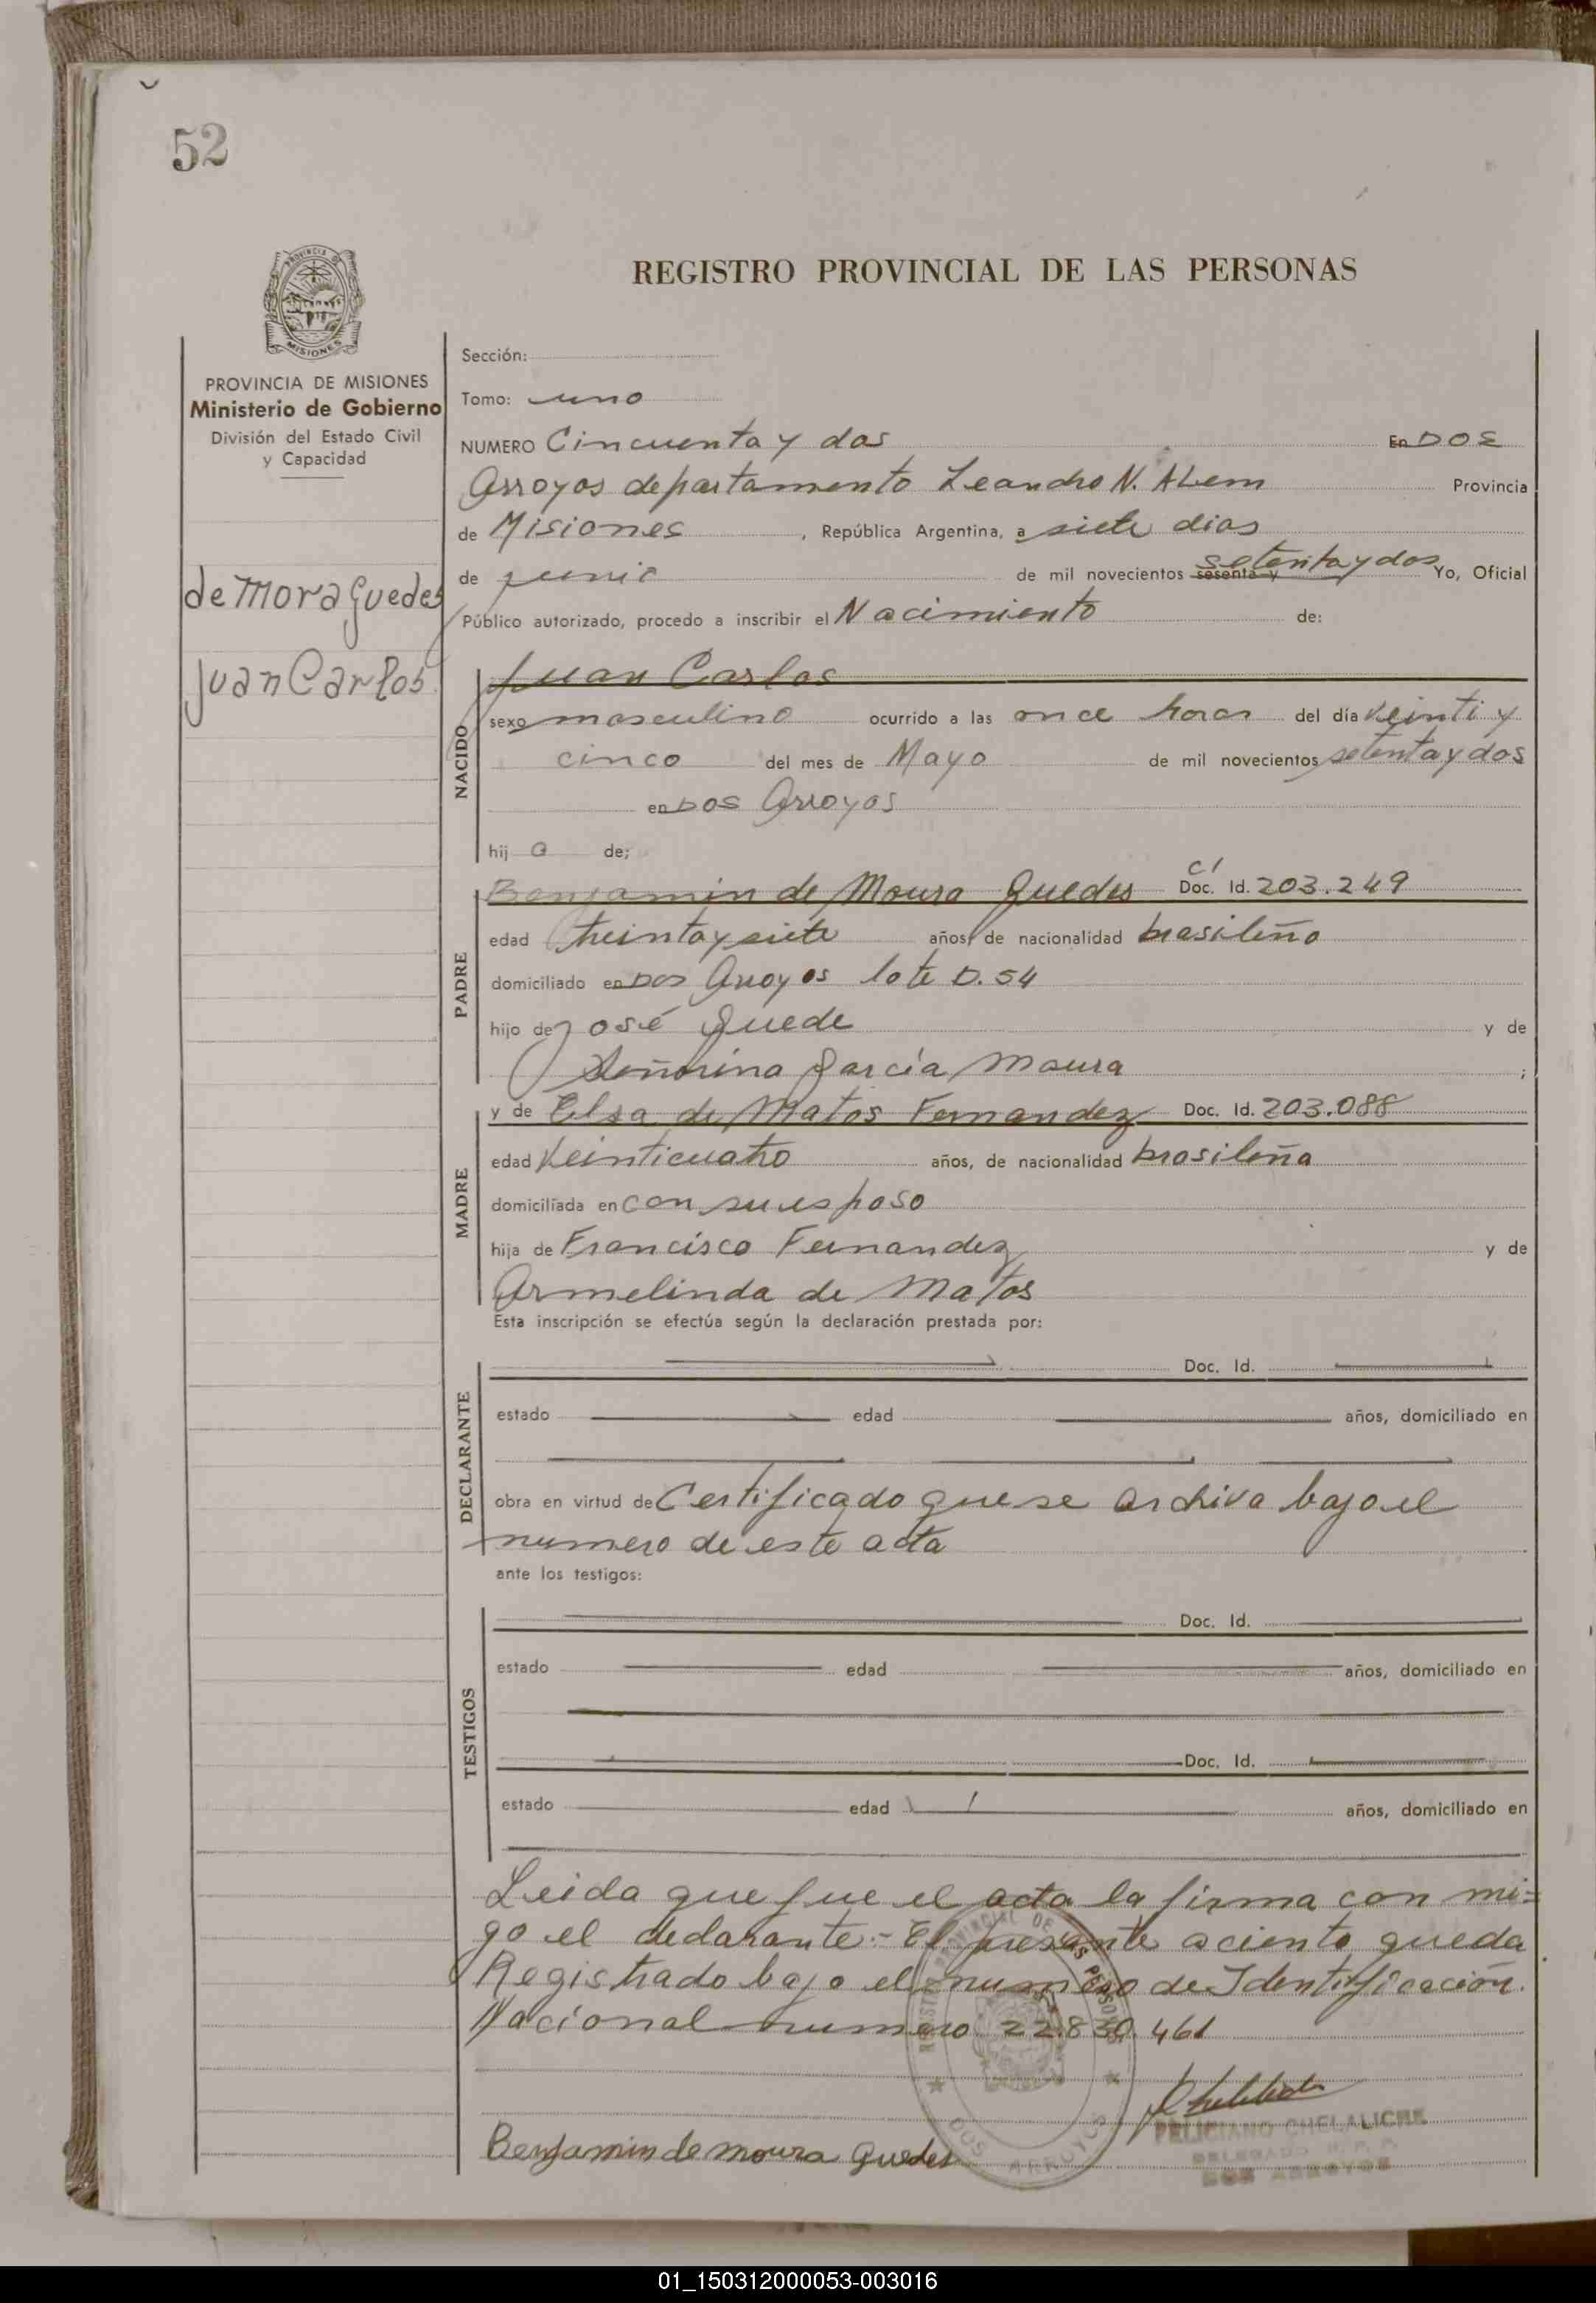 52
PROVINCIA DE MISIONES
Ministerio de Gobierno
División del Estado Civil
y Capacidad
de Mora Guedes
Juan Carlos
REGISTRO PROVINCIAL DE LAS PERSONAS
Sección:
Tomo: uno
NUMERO Cincuenta y dos En DOS
Arroyos departamento Leandro N. ALem Provincia
de Misiones, República Argentina, a siete dias
de junio de mil novecientos sesenta y setenta y dos Yo, Oficial
Público autorizado, procedo a inscribir el Nacimiento de:
NACIDO
Juan Carlos
sexo masculino ocurrido a las once horas del día veinti y
cinco del mes de Mayo de mil novecientos setenta y dos
en DOS Arroyos
hij o de;
PADRE
Benjamin de Moura Guedes CI Doc. Id. 203.249
edad treinta y siete años, de nacionalidad brasileño
domiciliado en Dos Arroyos lote D. 54
hijo de José Guede y de
Señorina García Moura ;
MADRE
y de Elsa de Matos Fernandez Doc. Id. 203.088
edad Veinticuatro años, de nacionalidad brasileña
domiciliada en con su esposo
hija de Francisco Fernandez y de
Armelinda de Matos
Esta inscripción se efectúa según la declaración prestada por:
DECLARANTE
Doc. Id.
estado edad años, domiciliado en
obra en virtud de Certificado que se archiva bajo el
numero de este acta
ante los testigos:
TESTIGOS
Doc. Id.
estado edad años, domiciliado en
Doc. Id.
estado edad años, domiciliado en
Leida que fue el acta la firma con mi=
go el declarante.- El presente aciento queda
Registrado bajo el numero de Identificación
Nacional numero 22.830.461
REGISTRO PROVINCIAL DE LAS PERSONAS
DOS ARROYOS
Benjamin de moura Guedes
FELICIANO CHELALICHE
DELEGADO R. P. P.
DOS ARROYOS
01_150312000053-003016